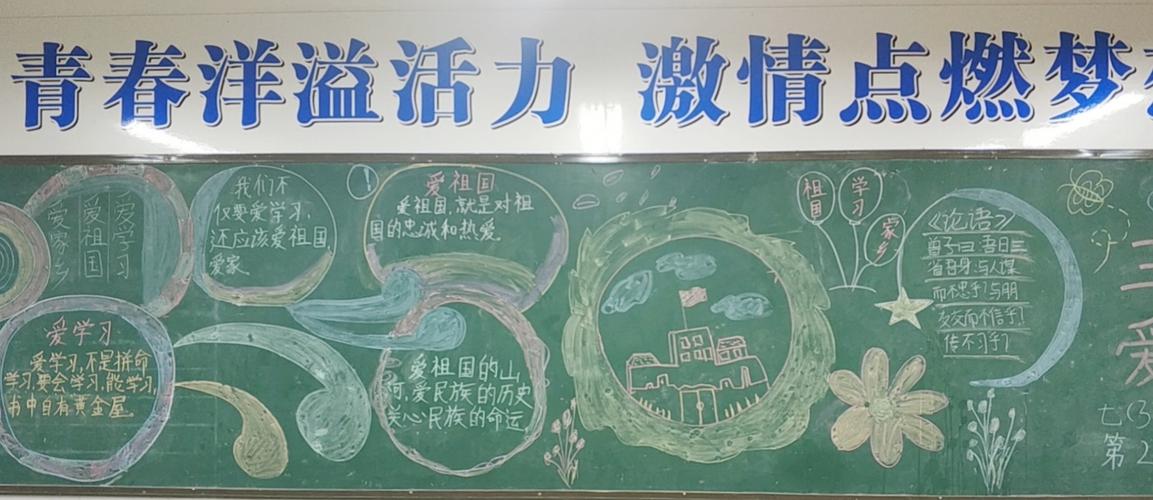 青春洋溢活力 激情点燃梦
爱学习
爱祖国
爱家乡
我们不
仅要爱学习,
还应该爱祖国,
爱家
爱祖国
爱祖国,就是对祖
国的忠诚和热爱.
爱学习
爱学习,不是拼命
学习,要会学习,能学习,
书中自有黄金屋.
爱祖国的山
河,爱民族的历史
关心民族的命运,
祖国
学习
家乡
《论语》
曾子曰:吾日三
省吾身:为人谋
而不忠乎?与朋
友交而不信乎?
传不习乎?
三
爱
七(3
第2